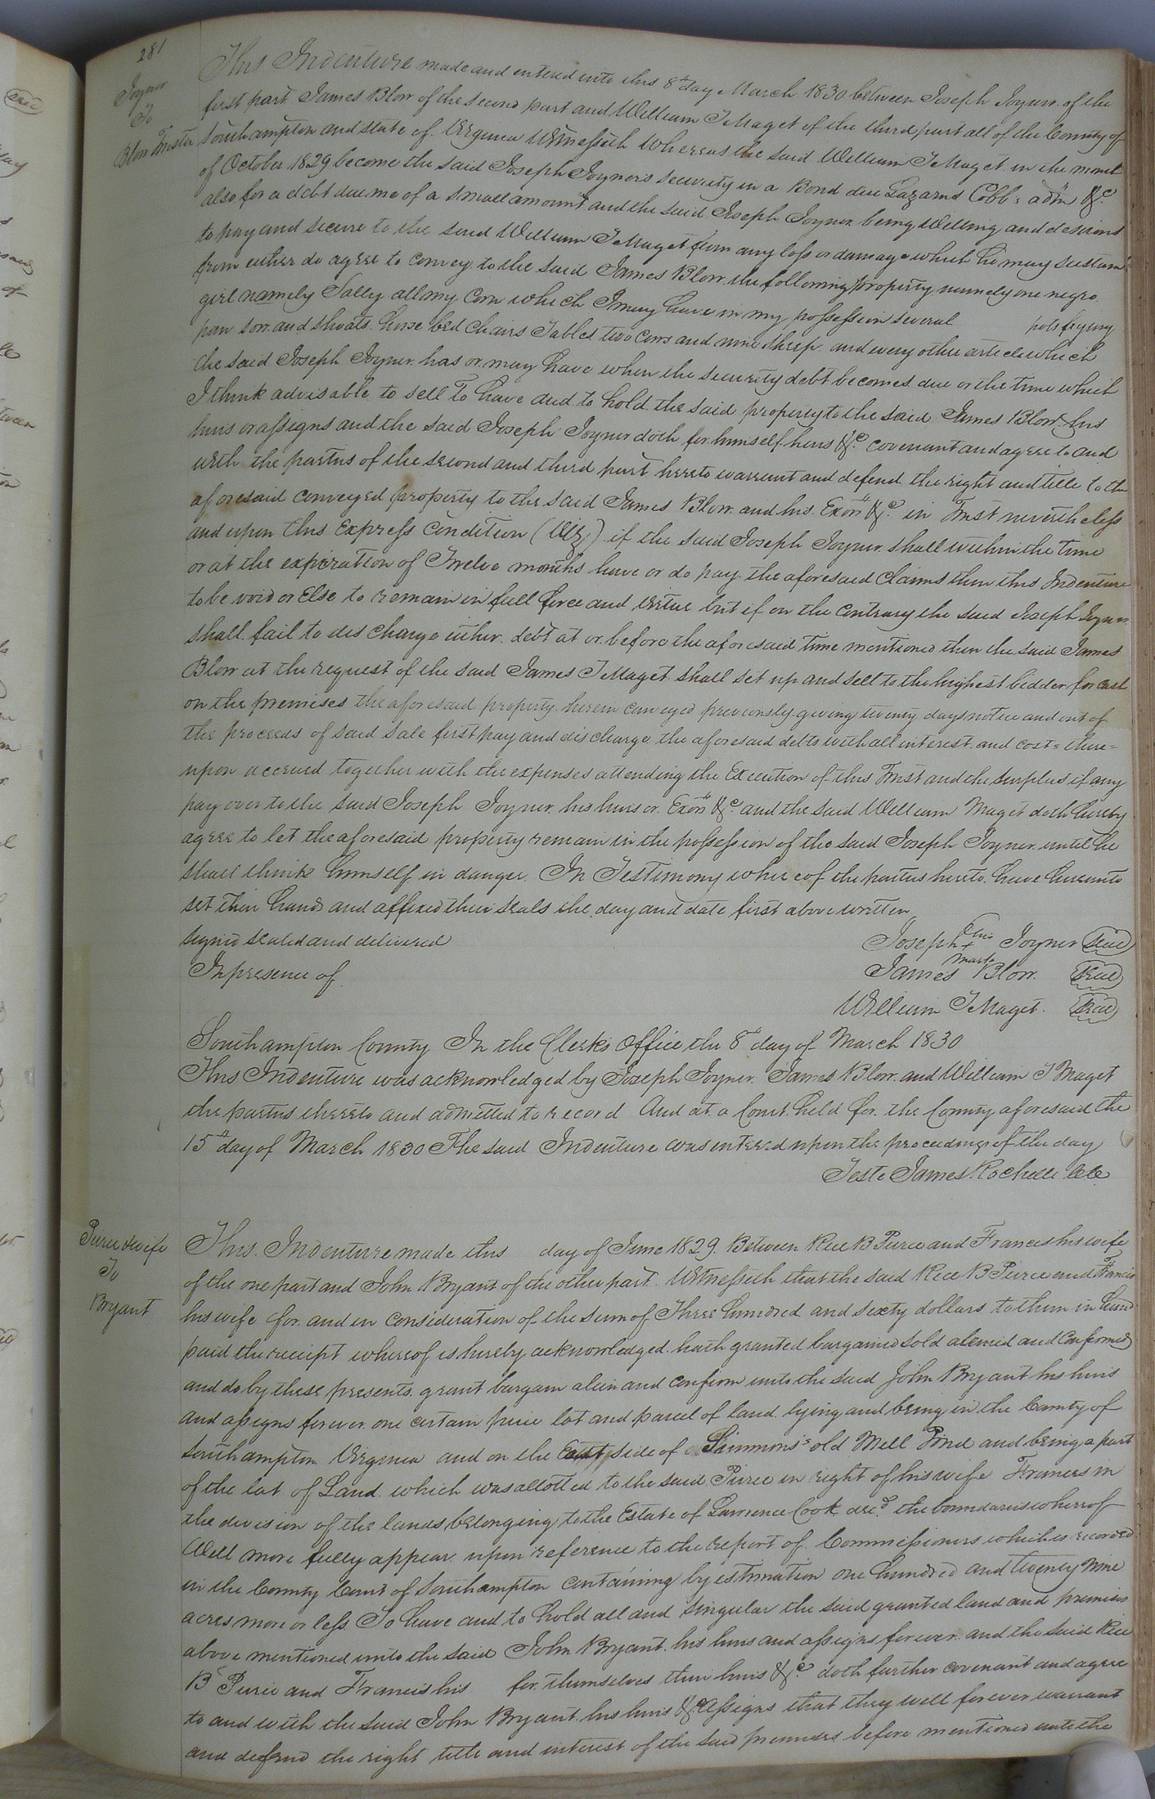 281
Joyner
To
Blow Trustee
This Indenture made and entered into this 8th day March 1830 between Joseph Joyner of the
first part James Blow of the second part and William T Maget of the third part all of the County of
Southampton and state of Virginia Witnesseth Whereas the said William T Maget in the month
of October 1829 become the said Joseph Joyner's security in a Bond due Lazarus Cobb's adm &c.
also for a debt due me of a small amount and the said Joseph Joyner being willing and desirous
to pay and secure to the said William T Maget from any loss or damage which he may sustain
from either do agree to convey to the said James Blow the following property namely one negro
girl namely Sally all my corn which I may have in my possession several pots frying
pan sow and shoats horse bed chairs Tables two cows and nine sheep and every other article which
the said Joseph Joyner has or may have when the security debt becomes due or the time which
I think advisable to sell To have and to hold the said property to the said James Blow his
heirs or assigns and the said Joseph Joyner doth for himself heirs &c. covenant and agree to and
with the parties of the second and third part hereto warrant and defend the right and title to the
aforesaid conveyed property to the said James Blow and his Exors &c. in Trust nevertheless
and upon this Express condition (Viz) if the said Joseph Joyner shall within the time
or at the expiration of Twelve months have or do pay the aforesaid Claims then this Indenture
to be void or Else to remain in full force and virtue but if on the contrary the said Joseph Joyner
shall fail to discharge either debt at or before the aforesaid time mentioned then the said James
Blow at the request of the said James T Maget shall set up and sell to the highest bidder for cash
on the premises the aforesaid property herein conveyed previously giving twenty days notice and out of
the proceeds of said sale first pay and discharge the aforesaid debts with all interest and costs there=
upon accrued together with the expenses attending the Execution of this Trust and the surplus if any
pay over to the said Joseph Joyner his heirs or Exors &c. and the said William Maget doth hereby
agree to let the aforesaid property remain in the possession of the said Joseph Joyner until he
shall think himself in danger In Testimony whereof the parties hereto have hereunto
set their hands and affixed their seals the day and date first above written
signed sealed and delivered
In presence of
Joseph his + mark Joyner Seal
James Blow Seal
William T Maget Seal
Southampton County In the Clerk's Office the 8th day of March 1830
This Indenture was acknowledged by Joseph Joyner James Blow and William T Maget
the parties thereto and admitted to record And at a Court held for the County aforesaid the
15th day of March 1830 The said Indenture was entered upon the proceedings of the day
Teste James Rochelle
Pierce & wife
To
Bryant
This Indenture made this day of June 1829 Between Rice B Pierce and Francis his wife
of the one part and John Bryant of the other part Witnesseth that the said Rice B Pierce and Francis
his wife for and in consideration of the sum of Three hundred and sixty dollars to them in hand
paid the receipt whereof is hereby acknowledged hath granted bargained sold aliened and confirmed
and do by these presents grant bargain alien and confirm unto the said John Bryant his heirs
and assigns forever one certain piece lot and parcel of land lying and being in the County of
Southampton Virginia and on the East side of Simmons's old Mill Pond and being a part
of the lot of Land which was allotted to the said Pierce in right of his wife Frances in
the division of the lands belonging to the Estate of Lawrence Cook decd. the boundaries whereof
Will more fully appear upon reference to the report of Commissioners which is recorded
in the County Court of Southampton containing by estimation one hundred and twenty Nine
acres more or less To have and to hold all and singular the said granted land and premises
above mentioned unto the said John Bryant his heirs and assigns forever and the said Rice
B Pierce and Francis his for themselves their heirs &c doth further covenant and agree
to and with the said John Bryant his heirs & Assigns that they will forever warrant
and defend the right title and interest of the said premises before mentioned unto the